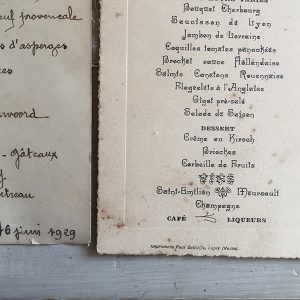 provençale
d'asperges
Gâteaux
juin 1929
Bouquet Cherbourg
Saucisson de Lyon
Jambon de Lorraine
Coquilles tomates panachées
Brochet sauce Hollandaise
Salmis Canetons Rouennaise
Flageolets à l'Anglaise
Gigot pré-salé
Salade de Saison
DESSERT
Crème au Kirsch
Brioches
Corbeille de Fruits
Saint-Emilion Meursault
Champagne
CAFÉ LIQUEURS
Imprimerie Paul